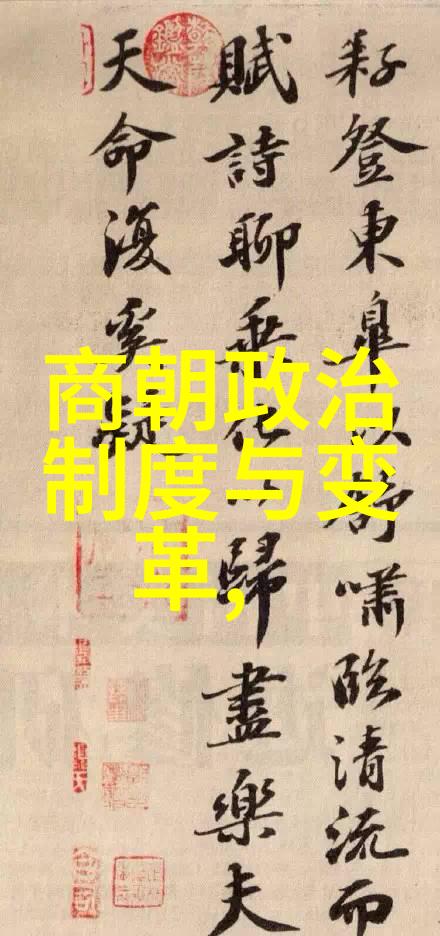 耔登東皋以舒嘯臨清流而
賦詩聊乘化以歸盡樂夫
天命復奚疑
商朝政治
制度与变
革,